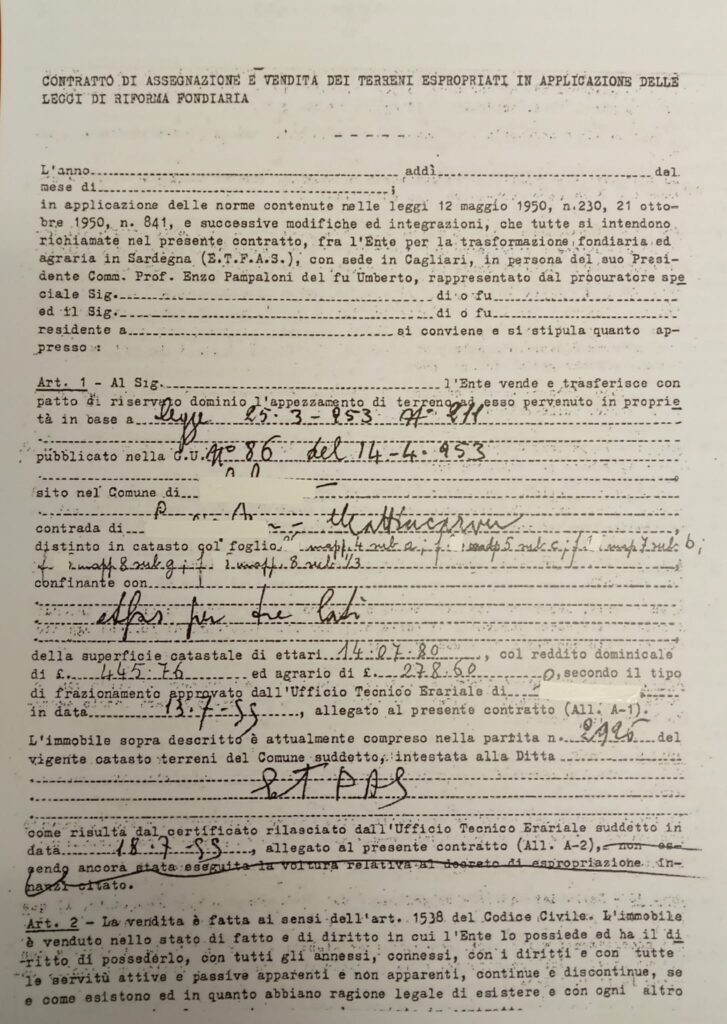 CONTRATTO DI ASSEGNAZIONE E VENDITA DEI TERRENI ESPROPRIATI IN APPLICAZIONE DELLE
LEGGI DI RIFORMA FONDIARIA
L'anno addì del
mese di ;
in applicazione delle norme contenute nelle leggi 12 maggio 1950, n.230, 21 otto-
bre 1950, n. 841, e successive modifiche ed integrazioni, che tutte si intendono
richiamate nel presente contratto, fra l'Ente per la trasformazione fondiaria ed
agraria in Sardegna (E.T.F.A.S.), con sede in Cagliari, in persona del suo Presi-
dente Comm. Prof. Enzo Pampaloni del fu Umberto, rappresentato dal procuratore spe
ciale Sig. di o fu
ed il Sig. di o fu
residente a si conviene e si stipula quanto ap-
presso :
Art. 1 - Al Sig. l'Ente vende e trasferisce con
patto di riservato dominio l'appezzamento di terreno ad esso pervenuto in proprie
tà in base a legge 25-3-953 N° 211
pubblicato nella G.U. N° 86 del 14-4-953
sito nel Comune di
contrada di
distinto in catasto col foglio mapp. 4 sub a; mapp 5 sub c; map 7 sub b;
mapp. 8 sub g; mapp. 8 sub
confinante con
etfas per tre lati
della superficie catastale di ettari 14.07.80, col reddito dominicale
di £. 445.76 ed agrario di £. 278.60, secondo il tipo
di frazionamento approvato dall'Ufficio Tecnico Erariale di
in data 13-7-55, allegato al presente contratto (All. A-1).
L'immobile sopra descritto è attualmente compreso nella partita n. del
vigente catasto terreni del Comune suddetto, intestata alla Ditta
ETFAS
come risulta dal certificato rilasciato dall'Ufficio Tecnico Erariale suddetto in
data 18-7-55, allegato al presente contratto (All. A-2), non es-
sendo ancora stata eseguita la voltura relativa al decreto di espropriazione in-
nanzi citato.
Art. 2 - La vendita è fatta ai sensi dell'art. 1538 del Codice Civile. L'immobile
è venduto nello stato di fatto e di diritto in cui l'Ente lo possiede ed ha il di
ritto di possederlo, con tutti gli annessi, connessi, con i diritti e con tutte
le servitù attive e passive apparenti e non apparenti, continue e discontinue, se
e come esistono ed in quanto abbiano ragione legale di esistere e con ogni altro